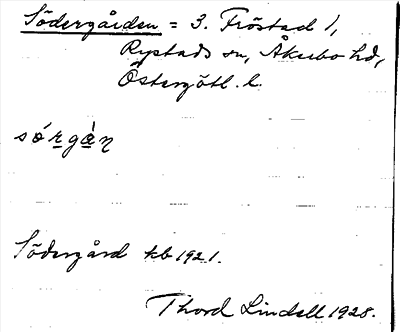 Södergården = 3. Fröstad 1,
Rystads sn, Åkerbo hd,
Östergötl. l.
sórgàn
Södergård kb 1921.
Thord Lindell 1928.